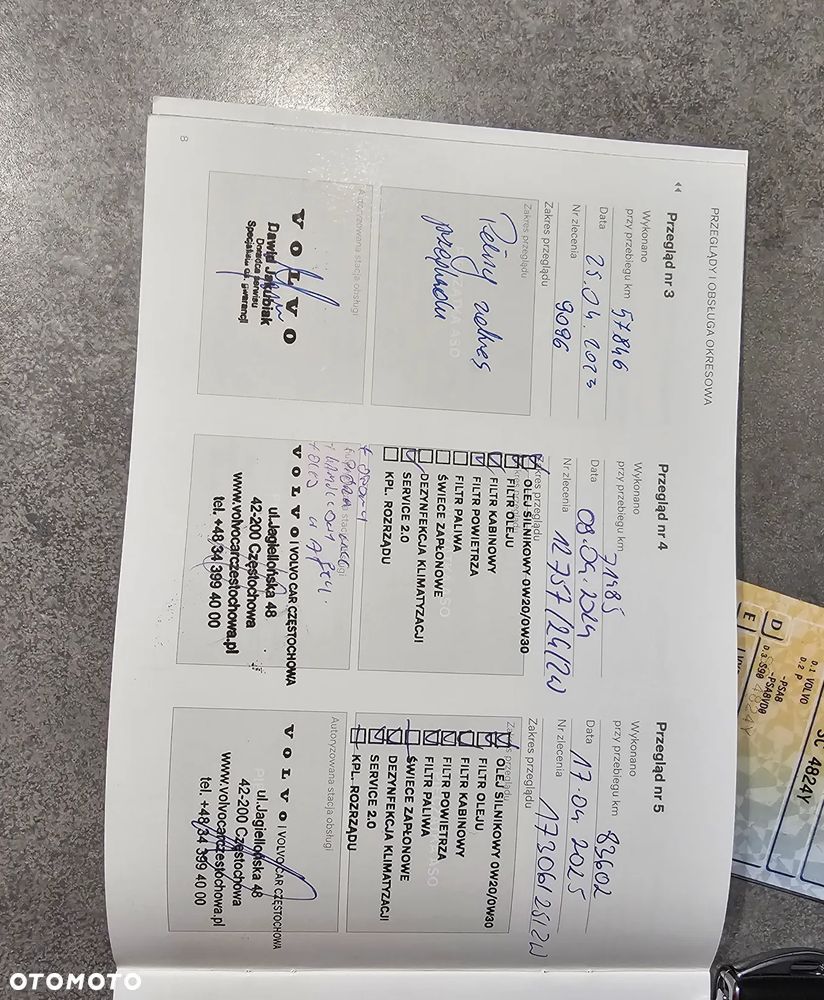 PRZEGLĄDY I OBSŁUGA OKRESOWA
Przegląd nr 3
Wykonano
przy przebiegu km 57846
Data 25.04.2023
Nr zlecenia 9096
Zakres przeglądu
Zakres przeglądu
Pełny zakres
przeglądu
Autoryzowana stacja obsługi
VOLVO
Dawid Jakubiak
Doradca serwisu
Specjalista ds. gwarancji
Przegląd nr 4
Wykonano
przy przebiegu km 71985
Data 08.04.2024
Nr zlecenia 12757/24/2W
Zakres przeglądu
OLEJ SILNIKOWY 0W20/0W30
FILTR OLEJU
FILTR KABINOWY
FILTR POWIETRZA
FILTR PALIWA
ŚWIECE ZAPŁONOWE
DEZYNFEKCJA KLIMATYZACJI
SERVICE 2.0
KPL. ROZRZĄDU
VOLVO | VOLVO CAR CZĘSTOCHOWA
ul.Jagiellońska 48
42-200 Częstochowa
www.volvocarczestochowa.pl
tel. +48 34 399 40 00
Przegląd nr 5
Wykonano
przy przebiegu km 83602
Data 17.04.2025
Nr zlecenia 17306/25/2W
Zakres przeglądu
OLEJ SILNIKOWY 0W20/0W30
FILTR OLEJU
FILTR KABINOWY
FILTR POWIETRZA
FILTR PALIWA
ŚWIECE ZAPŁONOWE
DEZYNFEKCJA KLIMATYZACJI
SERVICE 2.0
KPL. ROZRZĄDU
Autoryzowana stacja obsługi
VOLVO | VOLVO CAR CZĘSTOCHOWA
ul.Jagiellońska 48
42-200 Częstochowa
www.volvocarczestochowa.pl
tel. +48 34 399 40 00
8
4824Y
D.1 VOLVO
D.2 P
D
D.3 S90
E
OTOMOTO